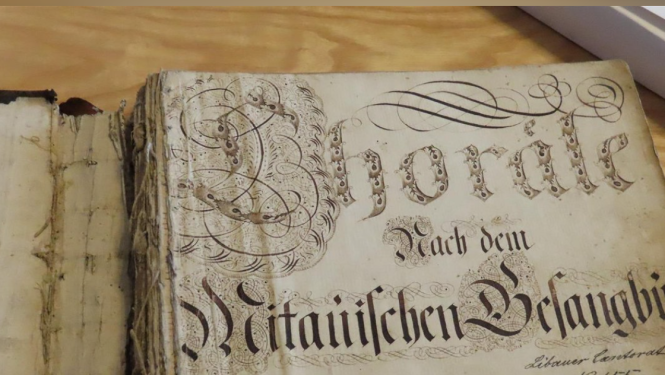 Choräle
Nach dem
Mitauischen Gesangbu
Libauer Cantorat